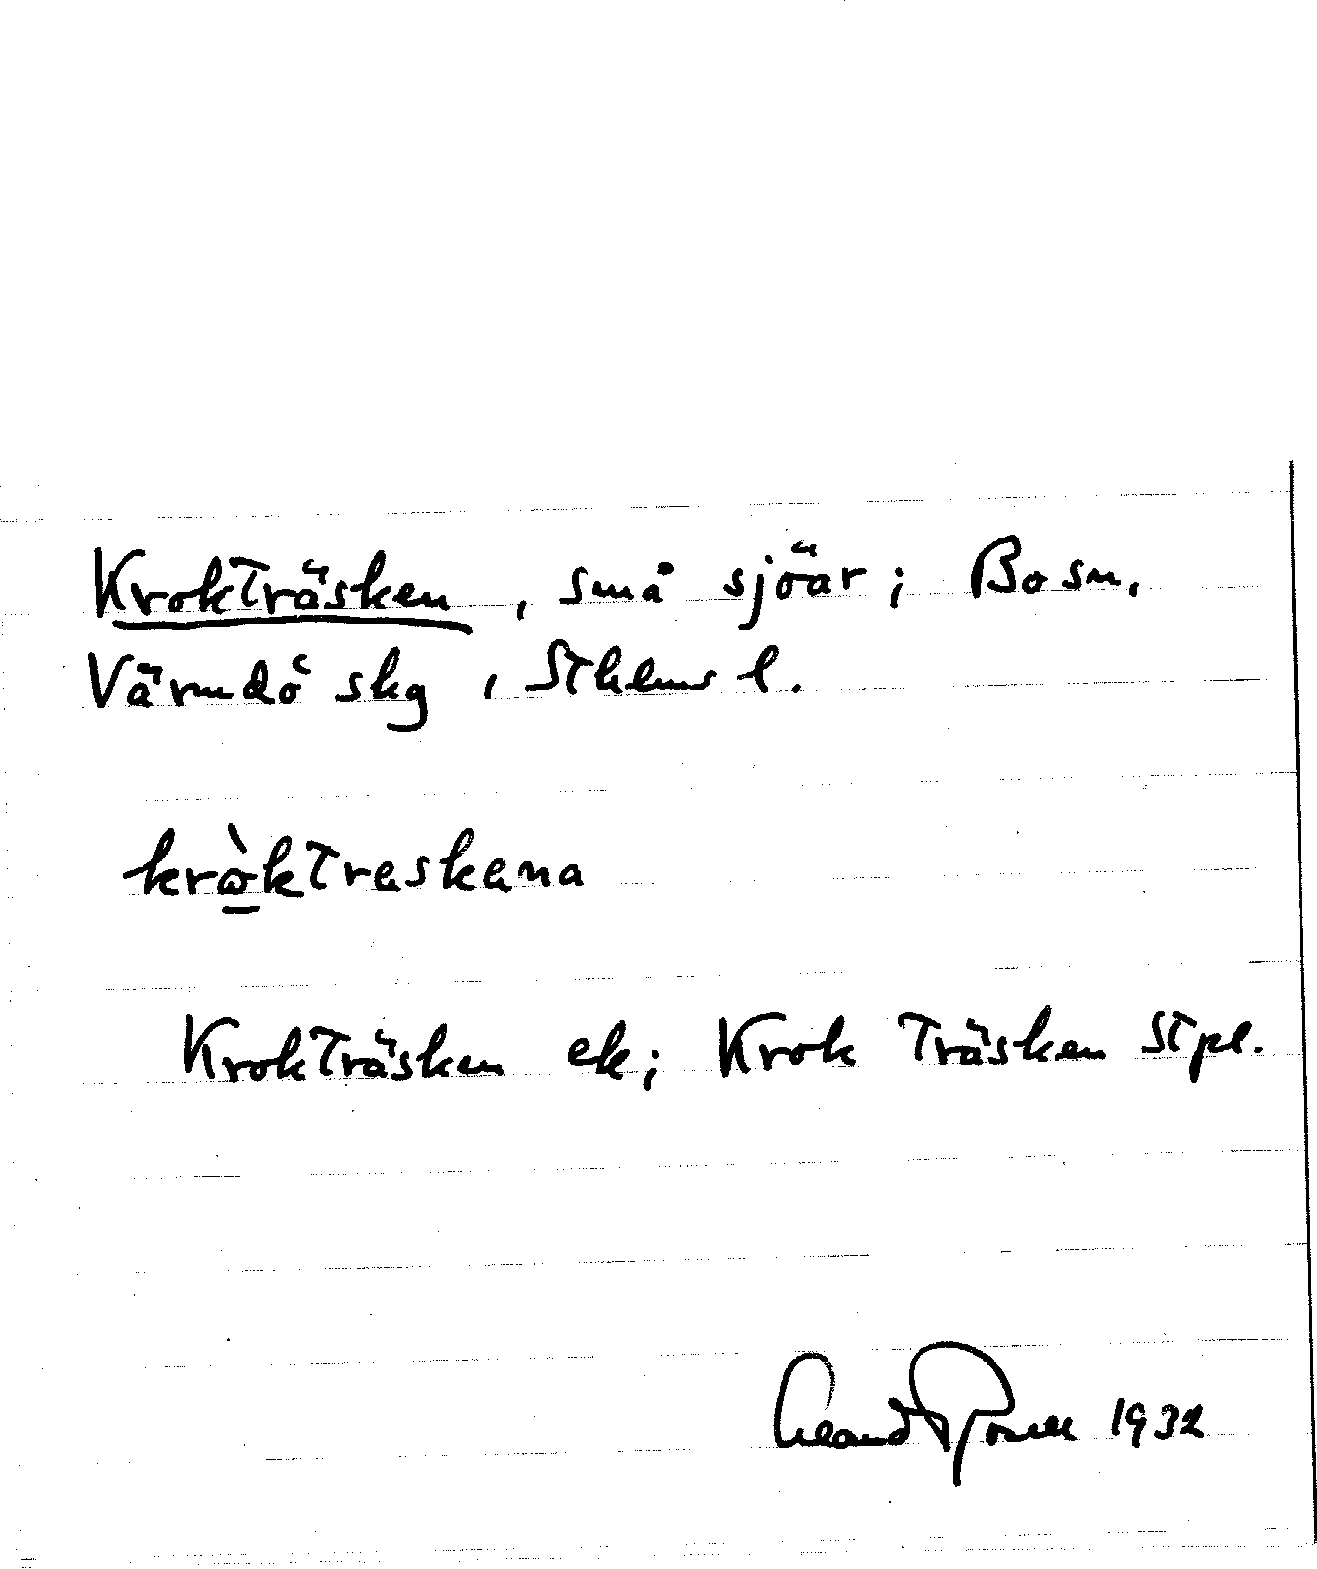 Krokträsken, små sjöar; Bo sn,
Värmdö skg, Sthlms l.
kròktreskena
Krokträsken ek; Krok Träsken Stpl.
1932